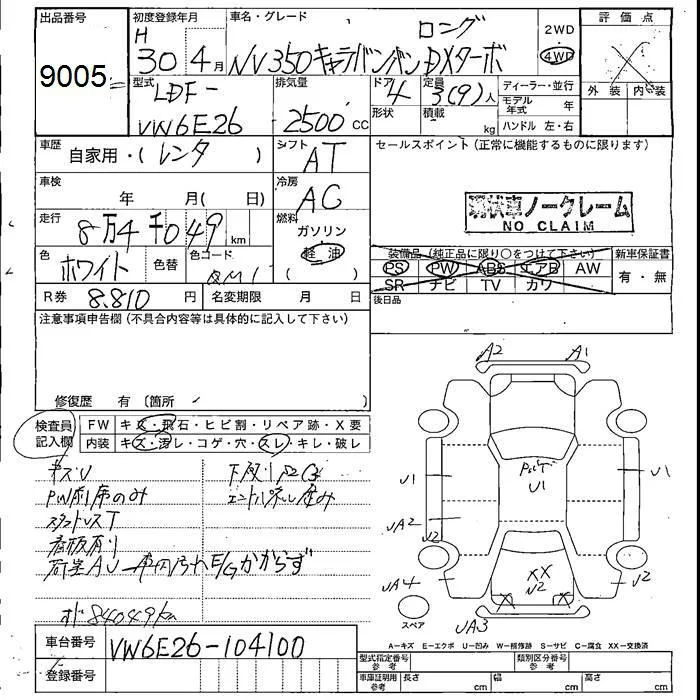 出品番号
9005
初度登録年月
H
30 4月
車名・グレード
ロング
NV350キャラバンバンDXターボ
2WD
4WD
評価点
外装 内装
型式
LDF-
VW6E26
排気量
2500 CC
ドア
4
形状
定員
3(9)人
積載
kg
ディーラー・並行
モデル年式 年
ハンドル 左・右
車歴
自家用・( レンタ )
シフト
AT
セールスポイント (正常に機能するものに限ります)
車検
年 月( 日)
冷房
AC
現状車ノークレーム
NO CLAIM
走行
8万4千049 km
燃料
ガソリン
(軽油)
色
ホワイト
色替
色コード
QM1
装備品 (純正品に限り○をつけて下さい)
PS PW ABS エアB AW
SR ナビ TV カワ
新車保証書
有・無
R券 8.810 円
名変期限 月 日
後日品
注意事項申告欄 (不具合内容等は具体的に記入して下さい)
修復歴 有 〔箇所
検査員
記入欄
FW キズ・飛石・ヒビ割・リペア跡・X要
内装 キズ・汚レ・コゲ・穴・スレ・キレ・破レ
キズU
PW前席のみ
スタットレスT
看板有り
荷室AU 車内汚れ E/Gかからず
メーター 84049km
A2 A1
U1
U1
UA2
U2
UA4
U2
XX
UA3
スペア
A=キズ E=エクボ U=凹み W=補修跡 S=サビ C=腐食 XX=交換済
車台番号 VW6E26-104100
登録番号
型式指定番号
参考
類別区分番号
参考
車庫証明用
参考
長さ cm
幅 cm
高さ cm